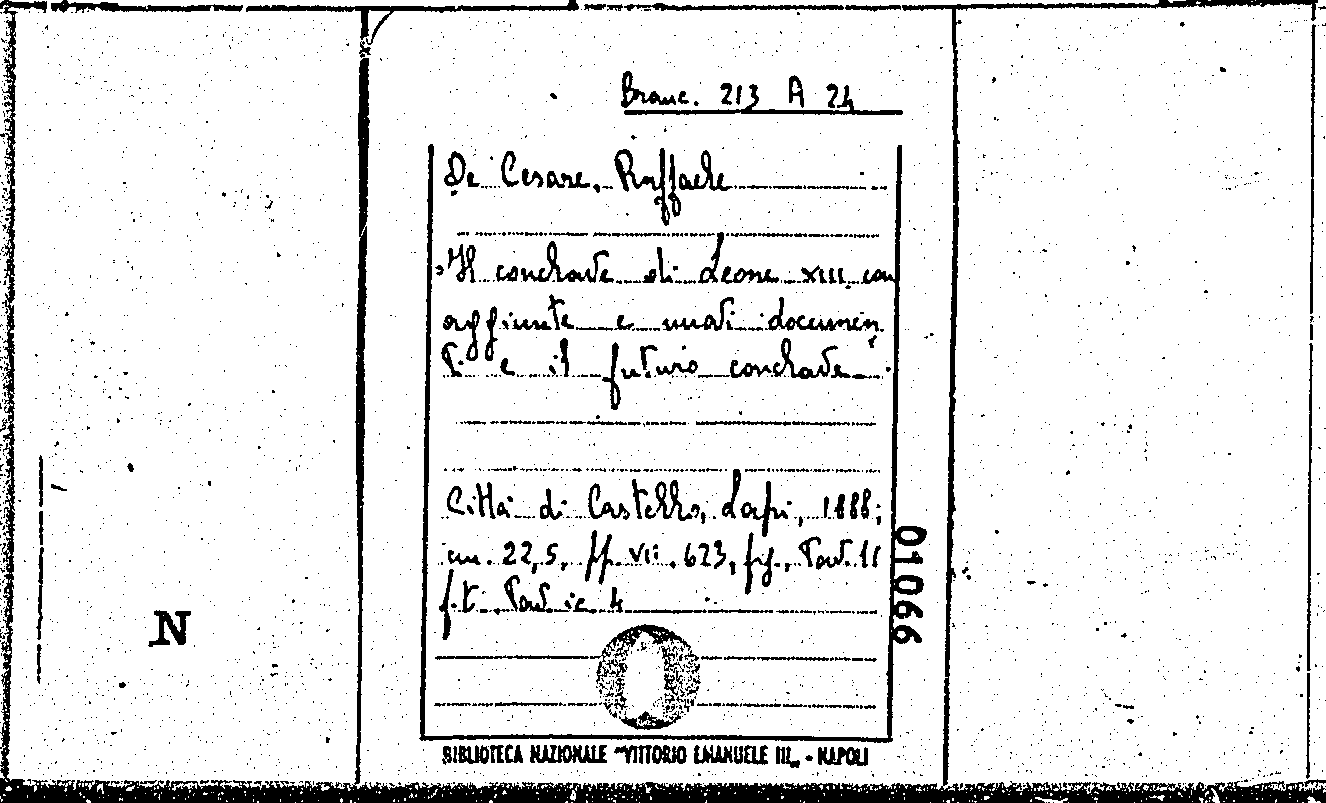 Branc. 213 A 24
De Cesare, Raffaele
Il conclave di Leone XIII con
aggiunte e nuovi documen
ti e il futuro conclave
Città di Castello, Lapi, 1888;
cm. 22,5, pp. VII. 623, fig., tav. 11
f.t. tav. ic. 4
01066
N
BIBLIOTECA NAZIONALE "VITTORIO EMANUELE III„ - NAPOLI